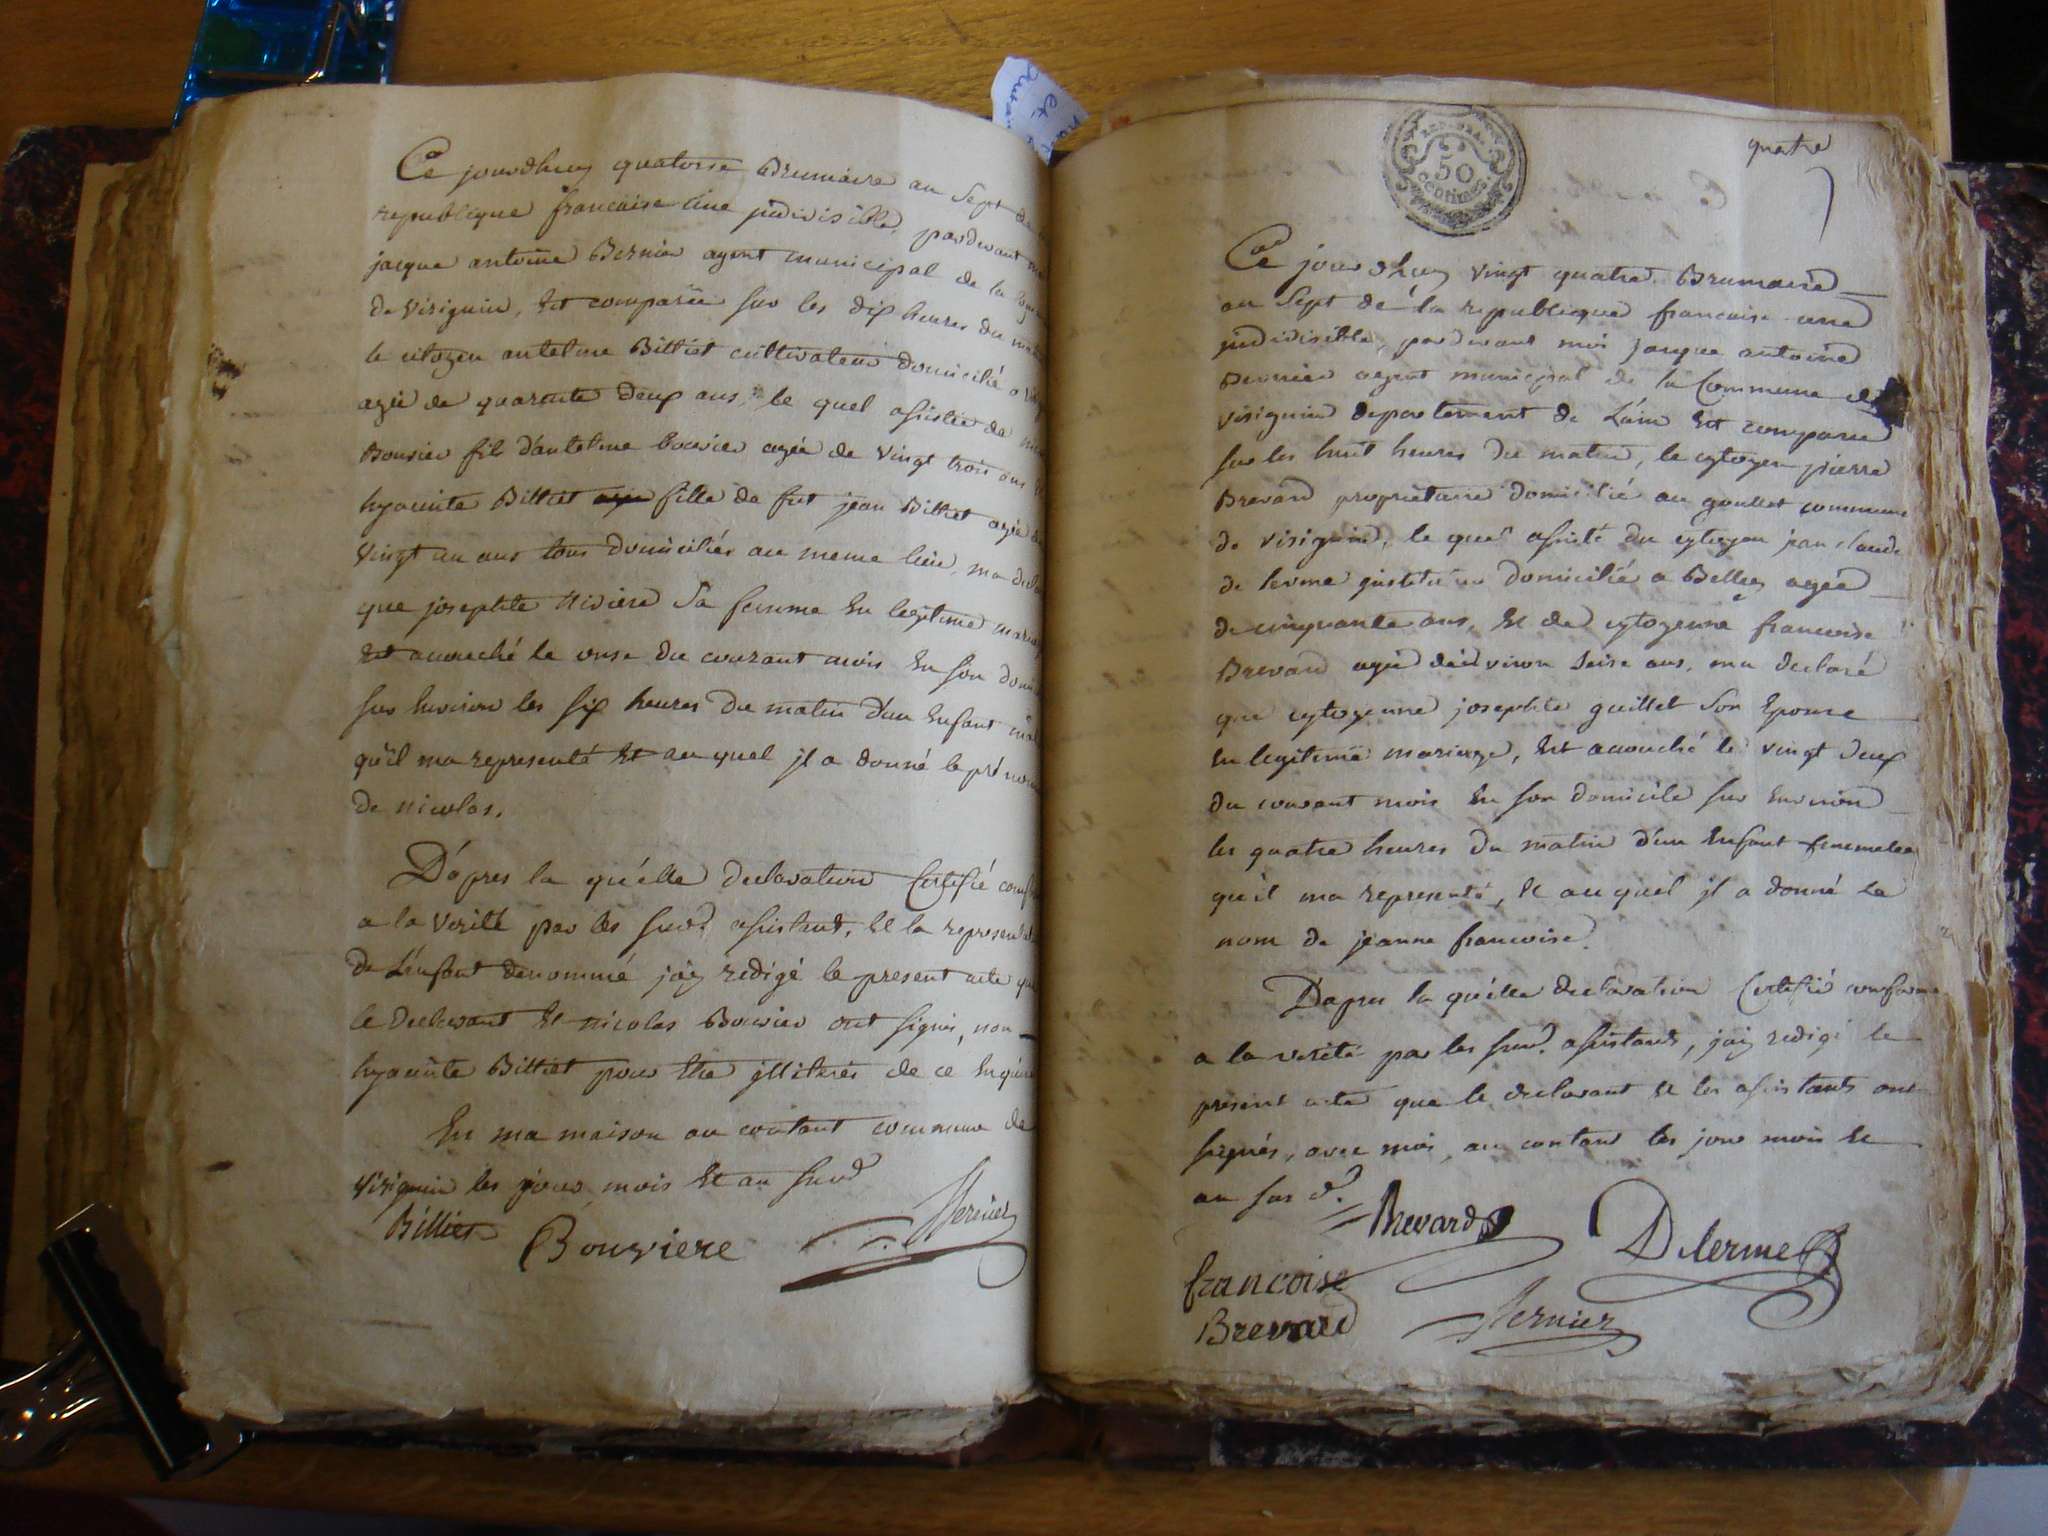 Ce jourdhuy quatorse Brumaire an Sept de
republique francaise une jndivisible, pardevant
jacque antoine Bernier agent municipal de la
de virignin, Est comparu sur les dix heures du
le citoyen antelme Billiet cultivateur domicilié a
agé de quarente deux ans, le quel assistée de
Bouvier fil d'antelme bouvier agée de vingt trois ans
hyacinte Billiet fille de fut jean Billiet agée
vingt un ans tous domiciliés au meme lieu, ma
que josephte Riviere sa femme en legitime
est acouché le onse du courant mois en son
sur environ les six heures du matin d'un enfant
qu'il ma representé et au quel jl a donné le prénom
de nicolas.
D'apres la qu'elle declaration Certifié
a la verité par les susd. assistans, et la
de L'enfant denommé j'ay redigé le present acte que
le declarant et nicolas Bouvier ont signés, non
hyacinte Billiet pour être jlliteré de ce enquise
En ma maison au contant commune de
virignin les jour mois et an susd
Billiet Bouviere Bernier
REP. FRA.
50
centimes
quatre
7
Ce jourdhuy vingt quatre Brumaire
an Sept de la republique francaise une
jndivisible, pardevant moi jacque antoine
Bernier agent municipal de la Commune de
virignin departement de L'ain Est comparu
sur les huit heures du matin, le cytoyen pierre
Brevard proprietaire domicilié au goullet commune
de virignin, le quel assisté du cytoyen jean claude
de lerme domicilié a Belley agée
de cinquante ans, et de cytoyenne francoise
Brevard agée d'environ seise ans, ma declaré
que cytoyenne josephte guillet son Epouse
en legitime mariage, est acouché le vingt deux
du courant mois en son domicile sur environ
les quatre heures du matin d'un enfant femmelee
qu'il ma representé, et au quel jl a donné le
nom de jeanne francoise.
D'apres la qu'elle declaration Certifié conforme
a la verité par les susd. assistans, j'ay redigé le
present acte que le declarant et les assistants ont
signés, avec moi, au contant les jour mois et
an sus d.
Brevard Delerme
francoise
Brevard Bernier